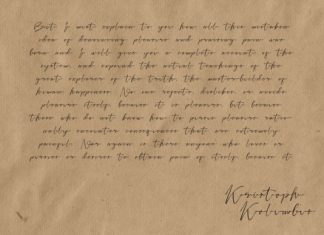 But I must explain to you how all this mistaken
idea of denouncing pleasure and praising pain was
born and I will give you a complete account of the
system, and expound the actual teachings of the
great explorer of the truth, the master-builder of
human happiness. No one rejects, dislikes, or avoids
pleasure itself, because it is pleasure, but because
those who do not know how to pursue pleasure ratio
nally encounter consequences that are extremely
painful. Nor again is there anyone who loves or
pursues or desires to obtain pain of itself, because it
Kristoph
Kolumbis